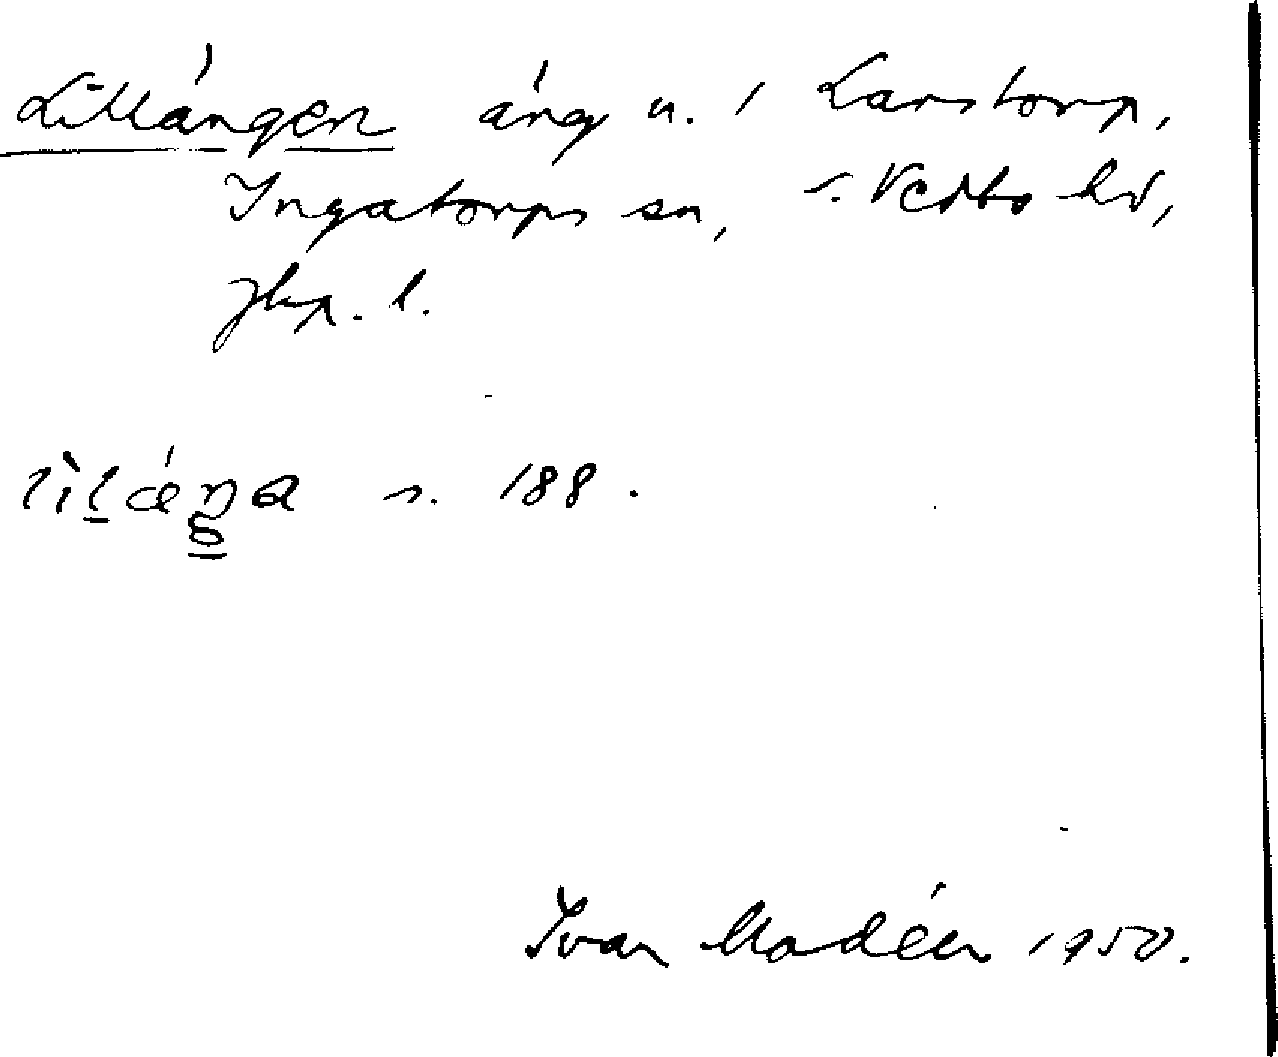 Lillängen äng u. 1 Larstorp,
Ingatorps sn, s. Vedbo hd,
Jkp. l.
lìlǽŋa s. 188.
Ivar Modéer 1950.